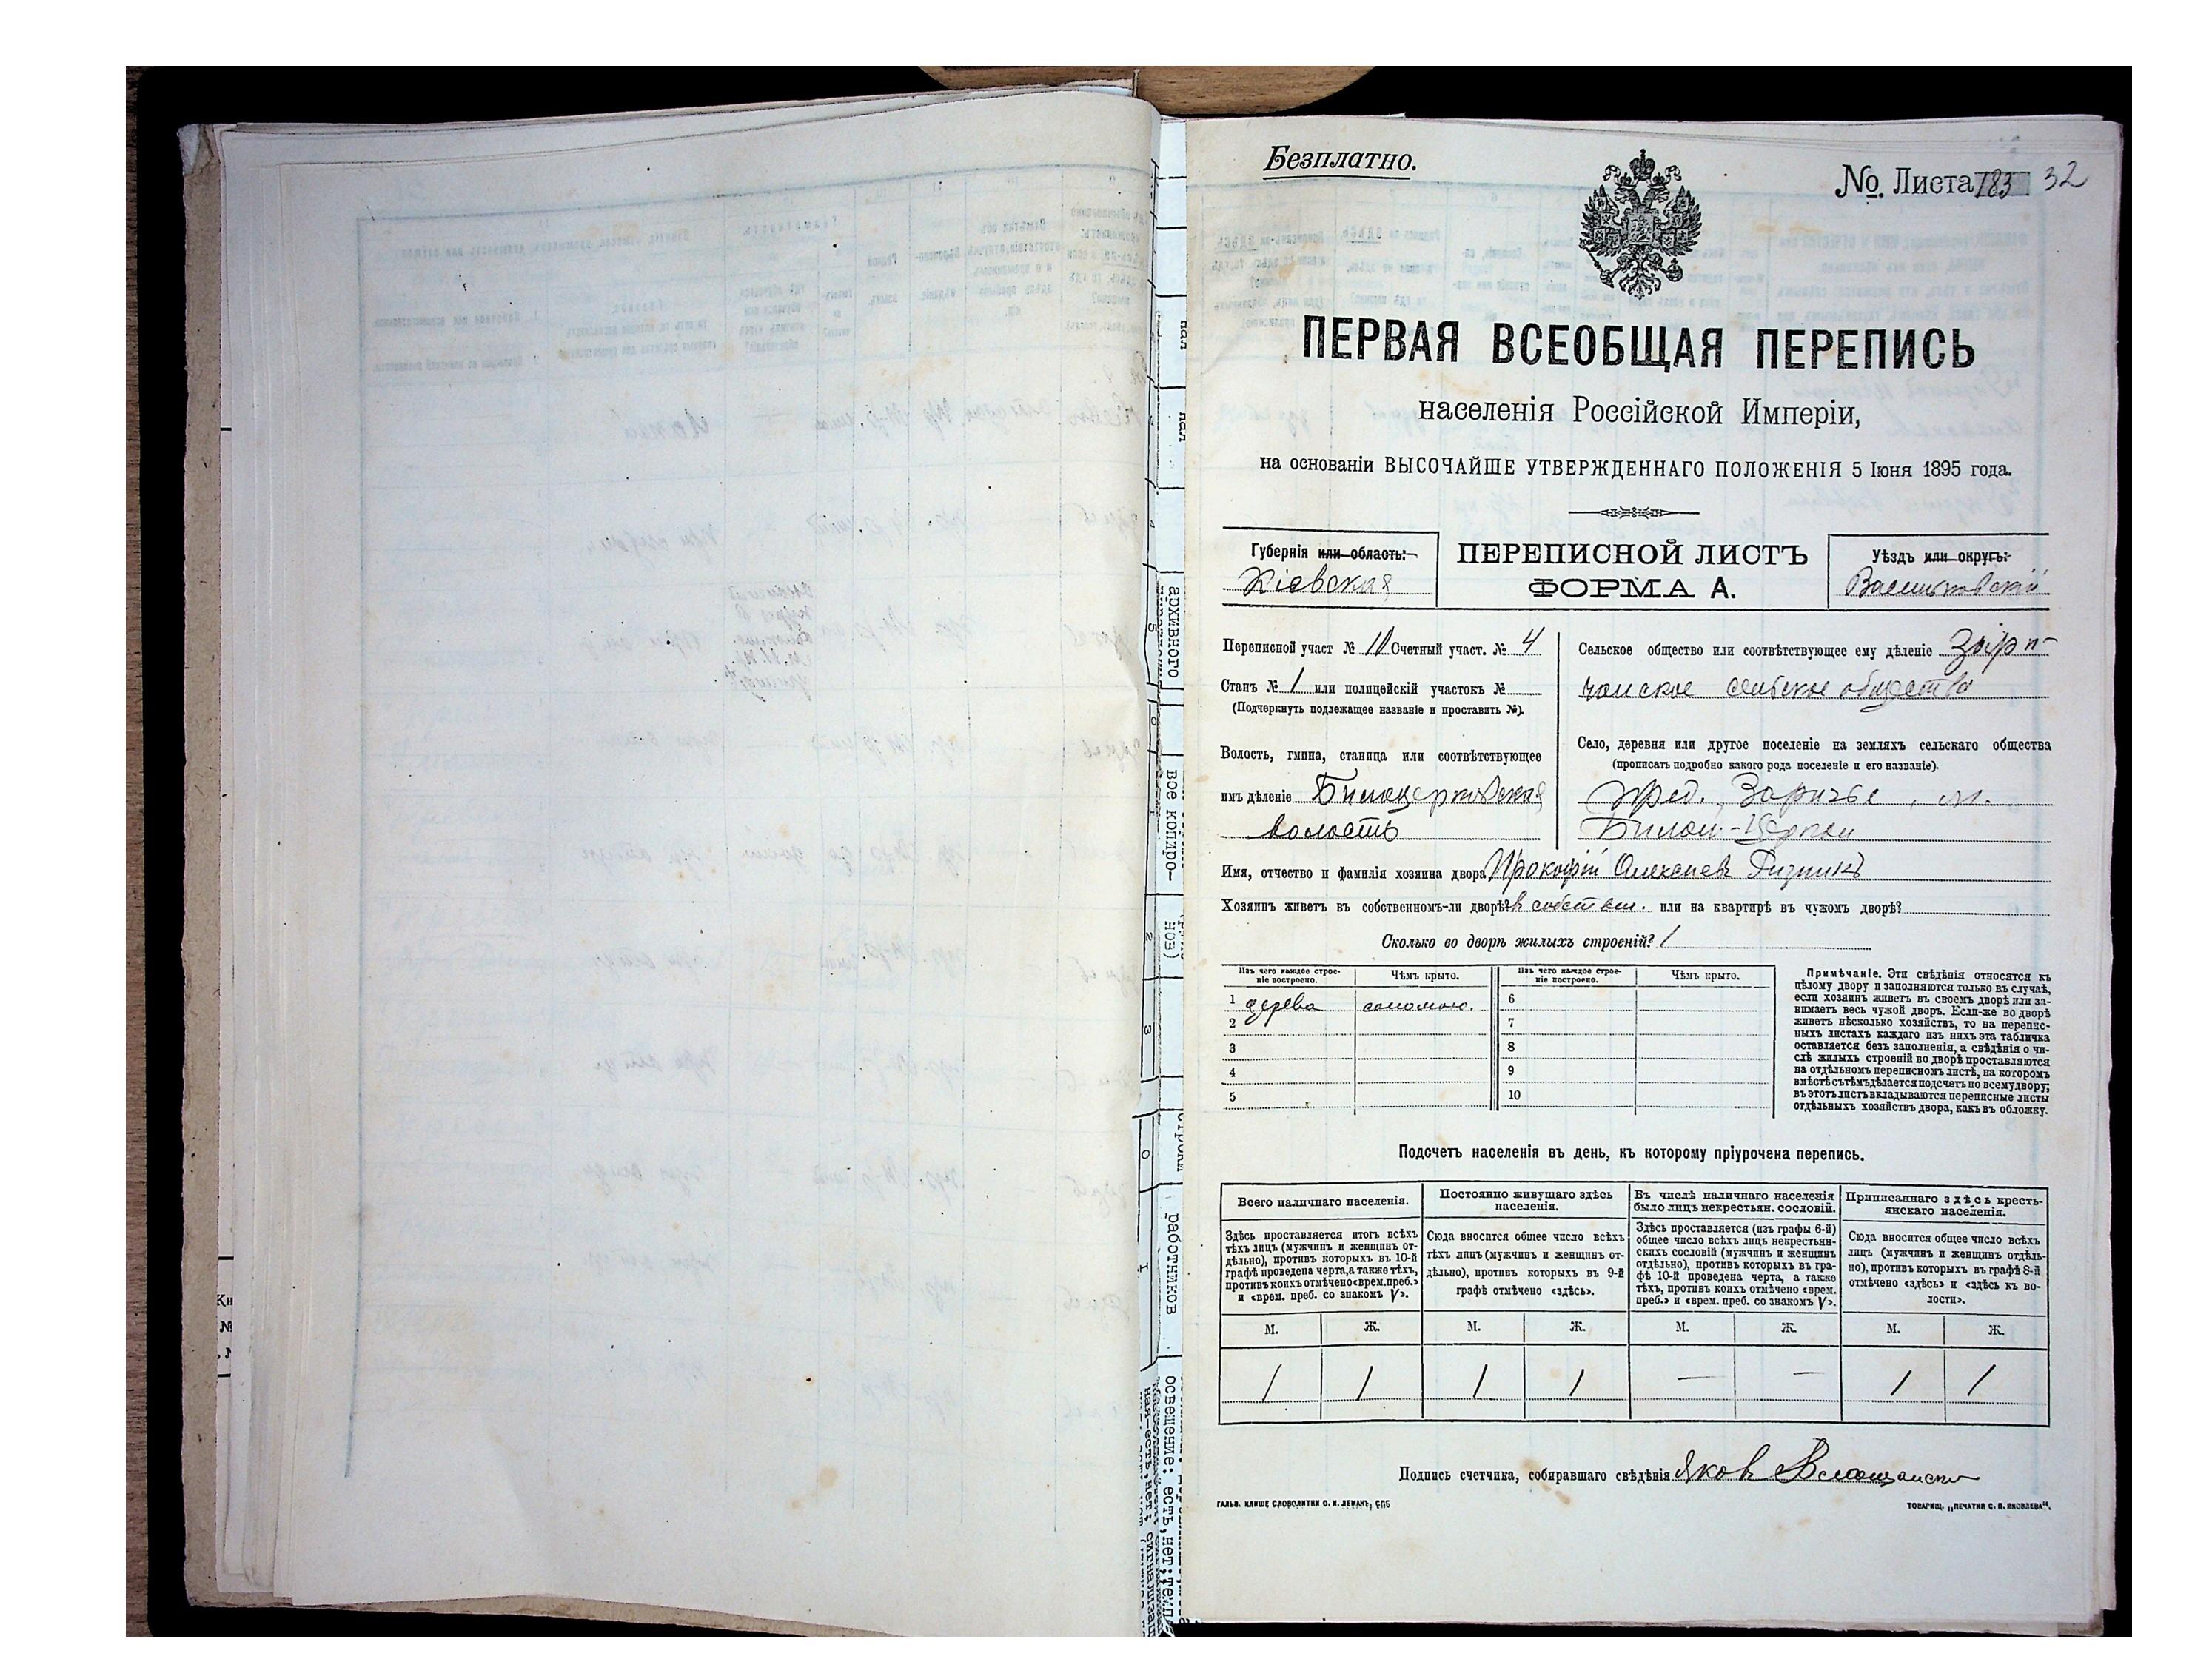 Безплатно.
№ Листа 183 32
ПЕРВАЯ ВСЕОБЩАЯ ПЕРЕПИСЬ
населенія Россійской Имперіи,
на основаніи ВЫСОЧАЙШЕ УТВЕРЖДЕННАГО ПОЛОЖЕНІЯ 5 Іюня 1895 года.
Губернія или область:
Кіевская
ПЕРЕПИСНОЙ ЛИСТЪ
ФОРМА А.
Уѣздъ или округъ:
Васильковскій
Переписной участ № 10 Счетный участ. № 4
Станъ № 1 или полицейскій участокъ №
(Подчеркнуть подлежащее названіе и проставить №).
Волость, гмина, станица или соотвѣтствующее
имъ дѣленіе Билоцерковская
волость
Сельское общество или соотвѣтствующее ему дѣленіе
сельское общество
Село, деревня или другое поселеніе на земляхъ сельскаго общества
(прописать подробно какого рода поселеніе и его названіе).
пред. Заричье, м.
Билой-Церкви
Имя, отчество и фамилія хозяина двора Прокофій Алексиевъ Ризникъ
Хозяинъ живетъ въ собственномъ-ли дворѣ? в собствен. или на квартирѣ въ чужомъ дворѣ?
Сколько во дворѣ жилыхъ строеній? 1
Изъ чего каждое строе-
ніе построено.
Чѣмъ крыто.
Изъ чего каждое строе-
ніе построено.
Чѣмъ крыто.
1 дерева соломою. 6
2 7
3 8
4 9
5 10
Примѣчаніе. Эти свѣдѣнія относятся къ
цѣлому двору и заполняются только въ случаѣ,
если хозяинъ живетъ въ своемъ дворѣ или за-
нимаетъ весь чужой дворъ. Если-же во дворѣ
живетъ нѣсколько хозяйствъ, то на перепис-
ныхъ листахъ каждаго изъ нихъ эта табличка
оставляется безъ заполненія, а свѣдѣнія о чи-
слѣ жилыхъ строеній во дворѣ проставляются
на отдѣльномъ переписномъ листѣ, на которомъ
вмѣстѣ съ тѣмъ дѣлается подсчетъ по всему двору;
въ этотъ листъ вкладываются переписные листы
отдѣльныхъ хозяйствъ двора, какъ въ обложку.
Подсчетъ населенія въ день, къ которому пріурочена перепись.
Всего наличнаго населенія.
Здѣсь проставляется итогъ всѣхъ
тѣхъ лицъ (мужчинъ и женщинъ от-
дѣльно), противъ которыхъ въ 10-й
графѣ проведена черта, а также тѣхъ,
противъ коихъ отмѣчено «врем. преб.»
и «врем. преб. со знакомъ V».
Постоянно живущаго здѣсь
населенія.
Сюда вносится общее число всѣхъ
тѣхъ лицъ (мужчинъ и женщинъ от-
дѣльно), противъ которыхъ въ 9-й
графѣ отмѣчено «здѣсь».
Въ числѣ наличнаго населенія
было лицъ некрестьян. сословій.
Здѣсь проставляется (изъ графы 6-й)
общее число всѣхъ лицъ некрестьян-
скихъ сословій (мужчинъ и женщинъ
отдѣльно), противъ которыхъ въ гра-
фѣ 10-й проведена черта, а также
тѣхъ, противъ коихъ отмѣчено «врем.
преб.» и «врем. преб. со знакомъ V».
Приписаннаго здѣсь кресть-
янскаго населенія.
Сюда вносится общее число всѣхъ
лицъ (мужчинъ и женщинъ отдѣль-
но), противъ которыхъ въ графѣ 8-й
отмѣчено «здѣсь» и «здѣсь къ во-
лости».
М. Ж. М. Ж. М. Ж. М. Ж.
1 1 1 1 — — 1 1
Подпись счетчика, собиравшаго свѣдѣнія Яков
ГАЛЬВ. КЛИШЕ СЛОВОЛИТНИ О. И. ЛЕМАНЪ, СПБ
ТОВАРИЩ. „ПЕЧАТНЯ С. П. ЯКОВЛЕВА“.
архивного
вое копиро-
работников